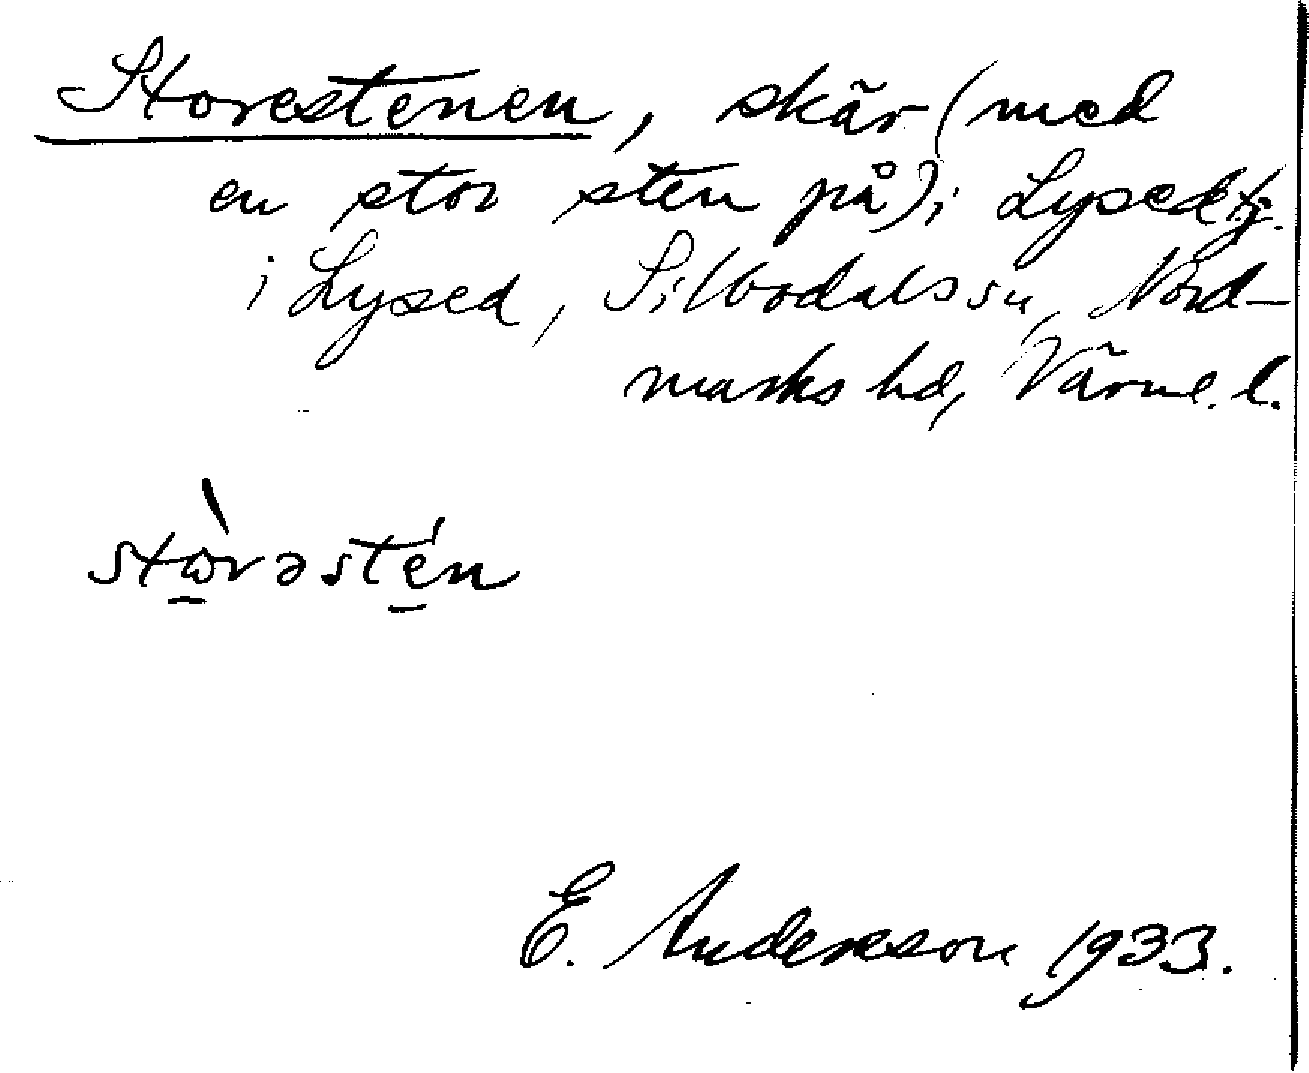 Storestenen, skär (med
en stor sten på) i Lysedtj.
i Lysed, Silbodals sn, Nord-
marks hd, Värml. l.
stὼrəstén
E. Andersson 1933.